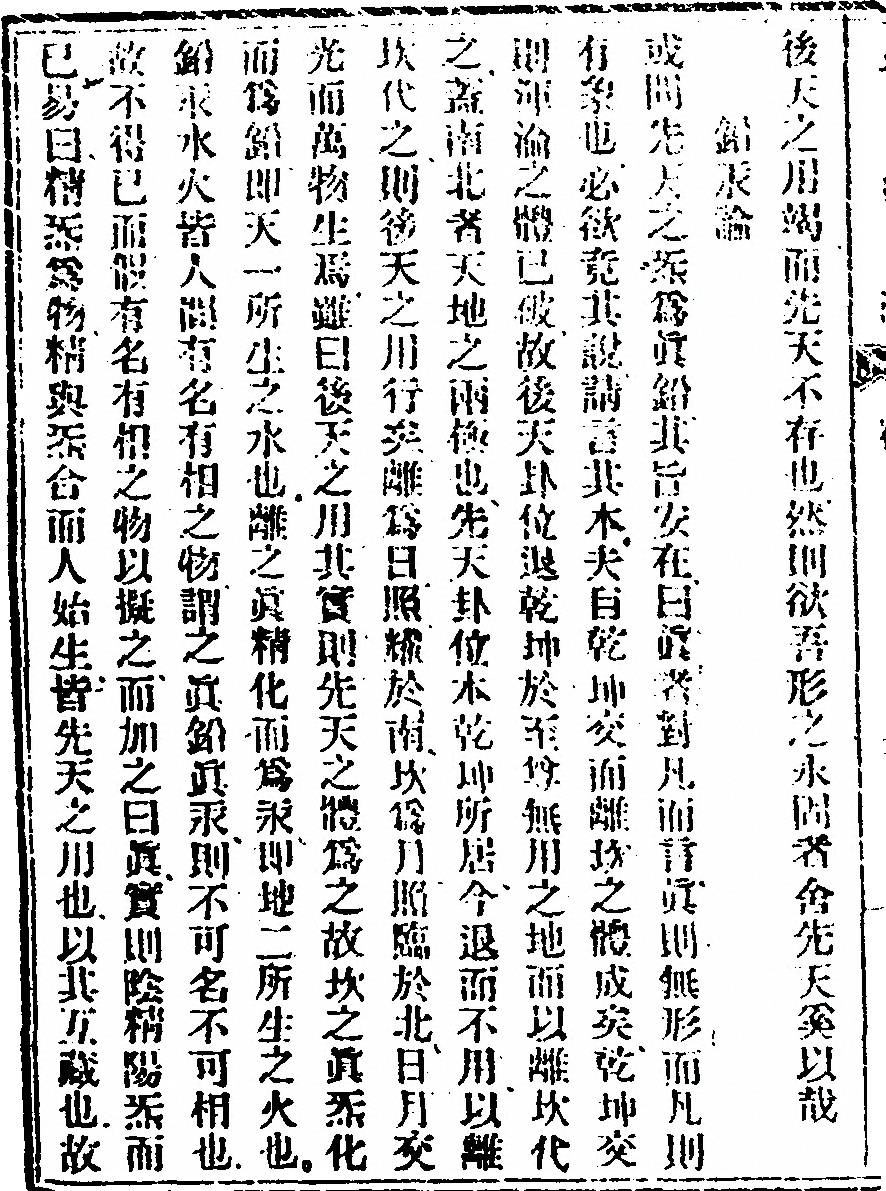 後天之用竭而先天不存也然則欲吾形之永固者舍先天奚以哉
鉛汞論
或問先天之炁爲眞鉛其旨安在曰眞者對凡而言眞則無形而凡則
有象也必欲竟其說請言其本夫自乾坤交而離坎之體成矣乾坤交
則渾淪之體已破故後天卦位退乾坤於至尊無用之地而以離坎代
之蓋南北者天地之兩極也先天卦位本乾坤所居今退而不用以離
坎代之則後天之用行矣離爲日照耀於南坎爲月照臨於北日月交
光而萬物生焉雖曰後天之用其實則先天之體爲之故坎之眞炁化
而爲鉛即天一所生之水也離之眞精化而爲汞即地二所生之火也
鉛汞水火皆人間有名有相之物謂之眞鉛眞汞則不可名不可相也
故不得已而假有名有相之物以擬之而加之曰眞實則陰精陽炁而
已易曰精炁爲物精與炁合而人始生皆先天之用也以其互藏也故